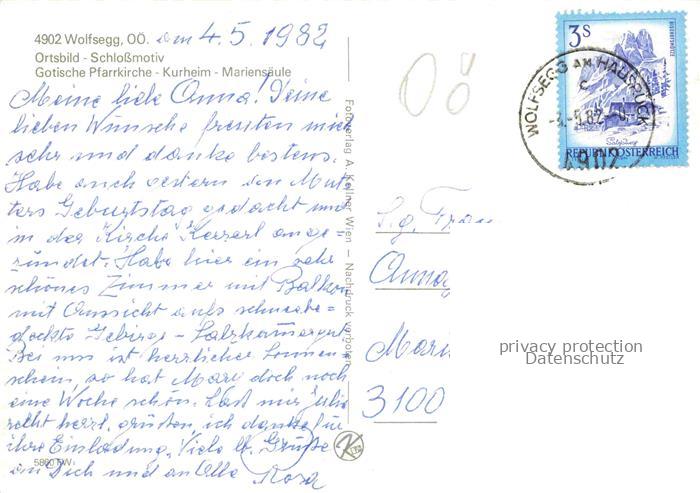 4902 Wolfsegg, OÖ. am 4.5.1982
Ortsbild - Schloßmotiv
Gotische Pfarrkirche - Kurheim - Mariensäule
Meine liebe Anna! Deine
lieben Wünsche freuten mich
sehr und danke bestens.
Habe auch gestern den Mut-
ters Geburtstag gedacht und
in der Kirche Kerzerl ange-
zündet. Habe hier ein sehr
schönes Zimmer mit Balkon
mit Aussicht aufs schneebe-
deckte Gebirge - Salzkammergut
Bei uns ist herrlicher Sonnen-
schein, so hat Mari doch noch
eine Woche schön. Lass mir Julie
recht herzl. grüßen, ich danke für
ihre Einladung. Viele lb. Grüße
an Dich und an Alle
Rosa
5860 FW
Fotoverlag A. Kellner Wien — Nachdruck verboten
OÖ
3S
WOLFSEGG AM HAUSRUCK
4902
REPUBLIK ÖSTERREICH
S.g. Frau
Anna
Mari
3100
privacy protection
Datenschutz